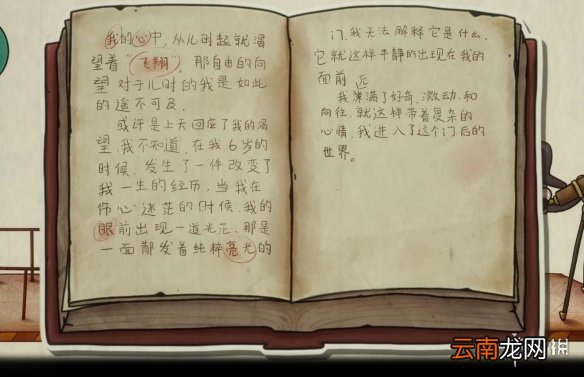 我的心中,从儿时起就渴
望着“飞翔”,那自由的向
望对于儿时的我是如此
的遥不可及.
或许是上天回应了我的渴
望.我不知道.在我6岁的
时候.发生了一件改变了
我一生的经历.当我在
伤心迷茫的时候.我的
眼前出现一道光茫.那是
一面散发着纯粹亮光的
门.我无法解释它是什么.
它就这样平静的出现在我的
面前
我深满了好奇、激动.和
向往.就这样带着复杂的
心情.我进入了这个门后的
世界。
云南龙网